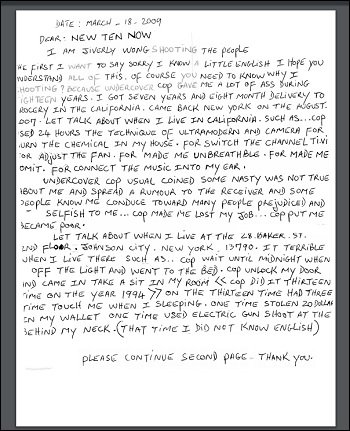 DATE: MARCH-18-2009
DEAR: NEW TEN NOW
I AM JIVERLY WONG SHOOTING THE PEOPLE
HE FIRST I WANT TO SAY SORRY I KNOW A LITTLE ENGLISH I HOPE YOU
NDERSTAND ALL OF THIS. OF COURSE YOU NEED TO KNOW WHY I
HOOTING? BECAUSE UNDERCOVER COP GAVE ME A LOT OF ASS DURING
IGHTEEN YEARS. I GOT SEVEN YEARS AND EIGHT MONTH DELIVERY TO
ROCERY IN THE CALIFORNIA. CAME BACK NEW YORK ON THE AUGUST.
007. LET TALK ABOUT WHEN I LIVE IN CALIFORNIA. SUCH AS...COP
SED 24 HOURS THE TECHNIQUE OF ULTRAMODERN AND CAMERA FOR
URN THE CHEMICAL IN MY HOUSE. FOR SWITCH THE CHANNEL TIVI
OR ADJUST THE FAN. FOR MADE ME UNBREATHBLE. FOR MADE ME
OMIT. FOR CONNECT THE MUSIC INTO MY EAR.
UNDERCOVER COP USUAL COINED SOME NASTY WAS NOT TRUE
BOUT ME AND SPREAD A RUMOUR TO THE RECEIVER AND SOME
EOPLE KNOW ME CONDUCE TOWARD MANY PEOPLE PREJUDICED AND
SELFISH TO ME... COP MADE ME LOST MY JOB... COP PUT ME
ECAME POOR.
LET TALK ABOUT WHEN I LIVE AT THE 28.BAKER.ST.
2ND FLOOR. JOHNSON CITY. NEW YORK 13790. IT TERRIBLE
WHEN I LIVE THERE SUCH AS.. COP WAIT UNTIL MIDNIGHT WHEN
OFF THE LIGHT AND WENT TO THE BED. COP UNLOCK MY DOOR
ND CAME IN TAKE A SIT IN MY ROOM << COP DID IT THIRTEEN
IME ON THE YEAR 1994 >> ON THE THIRTEEN TIME HAD THREE
TIME TOUCH ME WHEN I SLEEPING. ONE TIME STOLEN 20 DOLLAR
IN MY WALLET ONE TIME USED ELECTRIC GUN SHOOT AT THE
BEHIND MY NECK. (THAT TIME I DID NOT KNOW ENGLISH)
PLEASE CONTINUE SECOND PAGE - THANK YOU.